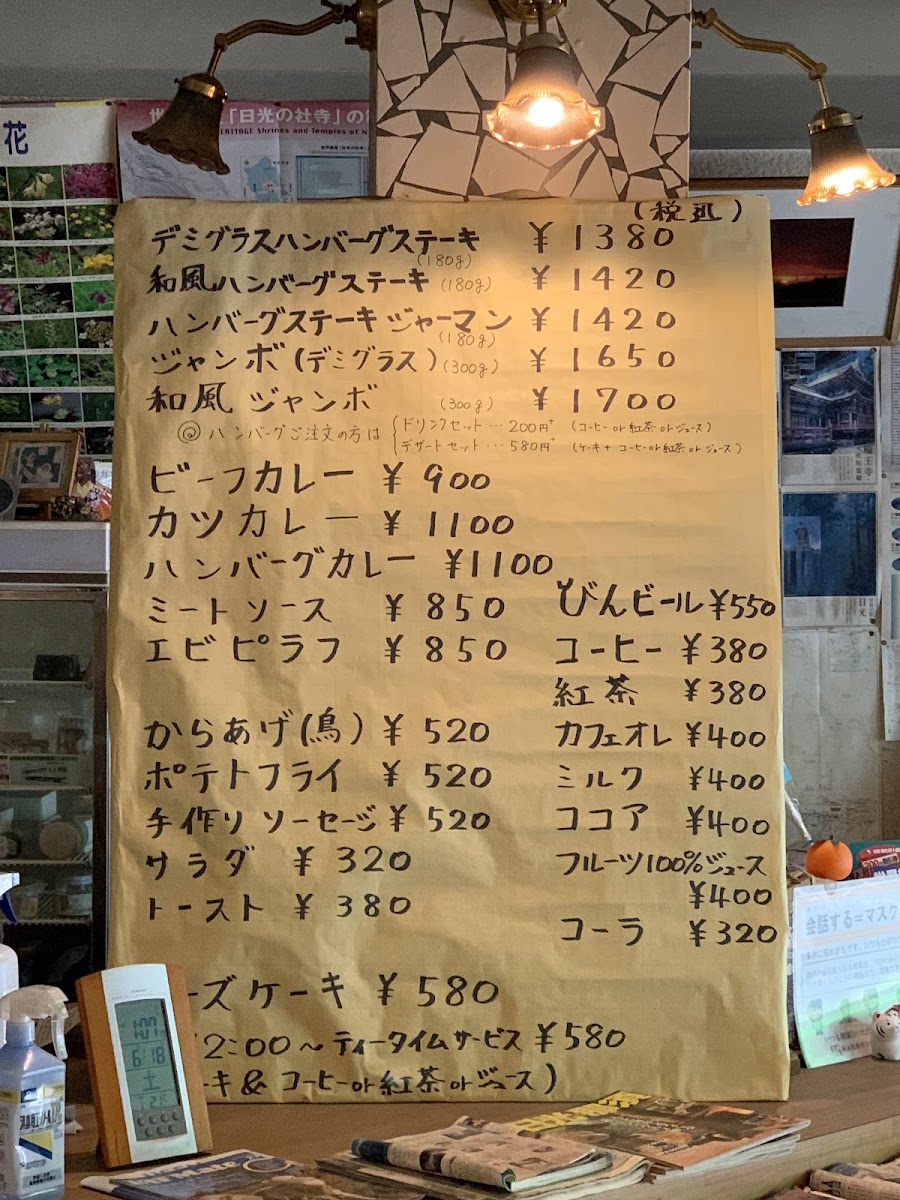 花
「日光の社寺」の
HERITAGE Shrines and Temples of N
(税込)
デミグラスハンバーグステーキ (180g) ¥1380
和風ハンバーグステーキ (180g) ¥1420
ハンバーグステーキジャーマン (180g) ¥1420
ジャンボ(デミグラス) (300g) ¥1650
和風ジャンボ (300g) ¥1700
◎ハンバーグご注文の方は
ドリンクセット…200円 (コーヒーor紅茶orジュース)
デザートセット…580円 (ケーキ+コーヒーor紅茶orジュース)
ビーフカレー ¥900
カツカレー ¥1100
ハンバーグカレー ¥1100
ミートソース ¥850
エビピラフ ¥850
からあげ(鳥) ¥520
ポテトフライ ¥520
手作りソーセージ ¥520
サラダ ¥320
トースト ¥380
びんビール ¥550
コーヒー ¥380
紅茶 ¥380
カフェオレ ¥400
ミルク ¥400
ココア ¥400
フルーツ100%ジュース
¥400
コーラ ¥320
ーズケーキ ¥580
12:00〜ティータイムサービス ¥580
ーキ&コーヒーor紅茶orジュース)
1:07
6/18
土
会話する=マスク
日光